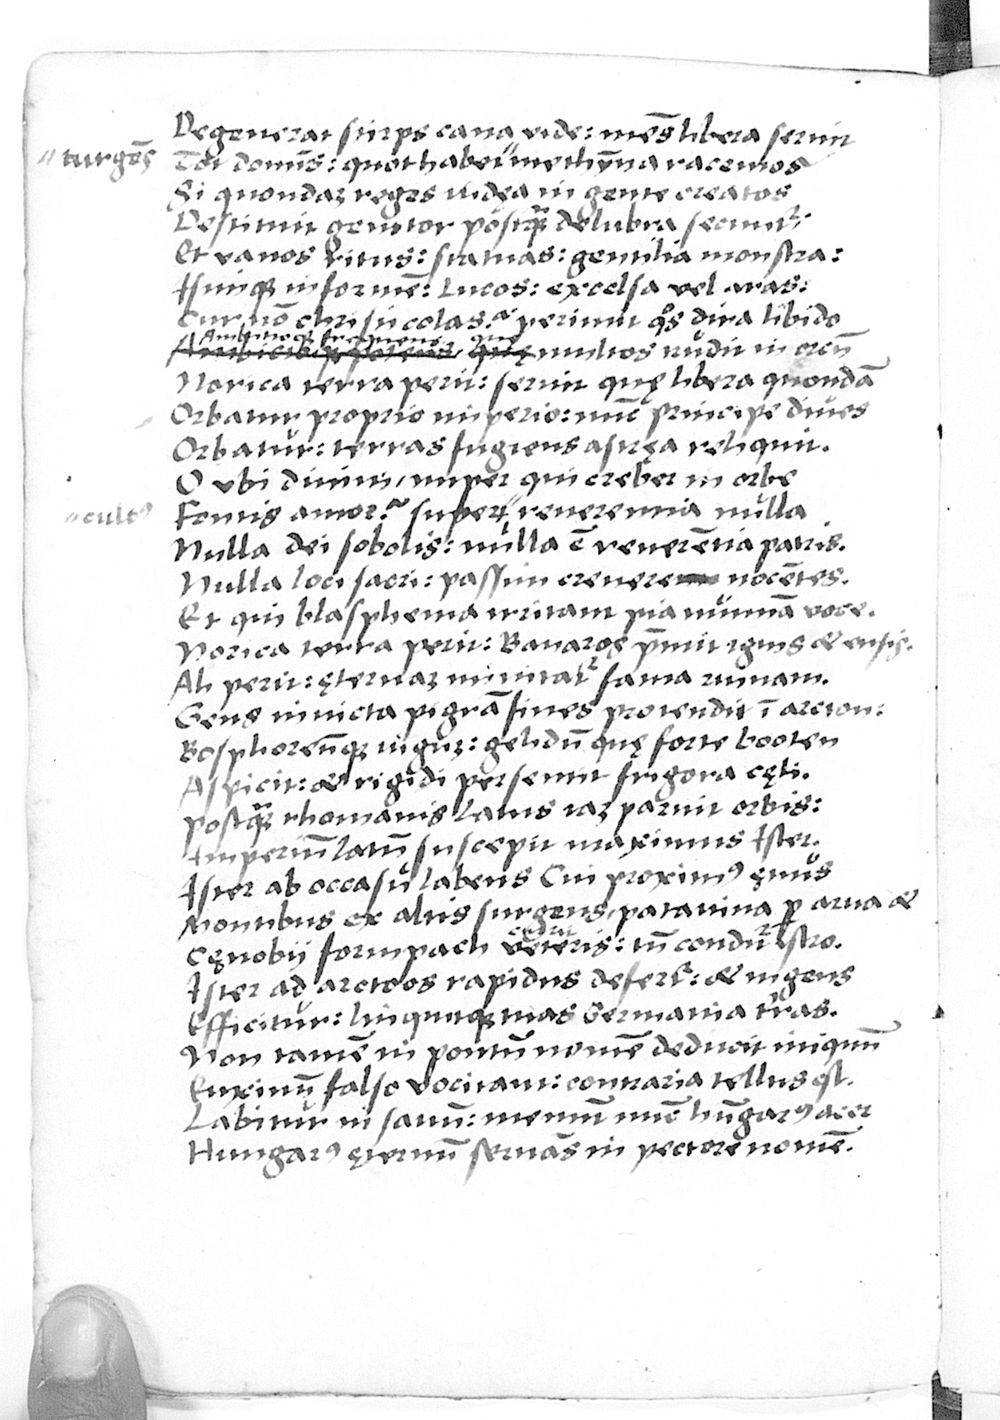 Degenerat stirps cana vide: mēs libera seruit
〃turgēs
Tot domus: quot habet〃 methȳna racemos
Si quondaʒ reges iudęa in gente creatos
Destituit genitor postq̄ʒ delubra secuti
Et vanos ritus: statuas: gentilia monstra:
Lucos: excelsa vel aras:
Cur nō christicolas: periunt q̊s dira libido
Ambitioqʒ frequens que
multos trudit in orcū
Norica terra perit: seruit quę libera quondā
Orbatur proprio imperio: nūc principe diues
Orbatur: terras fugiens astręa reliquit.
O vbi diuini, nuper qui creber in orbe
〃cultꝰ
Fontis amor: superū〃 reuerentia nulla
Nulla dei sobolis: nulla ē reuerētia patris.
Nulla loci sacri: passim creuere nocētes.
Et qui blasphema irritant pia numinā voce.
Norica terra perit: Bauaros p̄mit ignis & ensis.
Ah perit: ęternaʒ minitat᷑ fama ruinam.
Gens inuicta pigrā fines protendit ī arcton:
Bosphorenūqʒ iuguʒ: gelidū quę forte booten
Aspicit: & rigidi persentit frigora cęli.
Postq̄ʒ rhomanis latius iaʒ paruit orbis:
Imperiū latū suscepit maximus Ister.
Ister ab occasu labens Cui proximꝰ ęnus
Montibus ex altis surgens, patauina ꝑ arua &
Cęnobij formpach veteris: tū condit᷑ istro.
Ister ad arctoos rapidus defert᷑: & ingens
Efficitur: linquitqʒ tuas Germania tr̄as.
Non tamē in pontū nomē deducit iniquū
Euxinū falso vocitant: contraria tellus est.
Labitur in hūgarꝰ acer
Hungarꝰ ęternū seruās in pectore nomē.